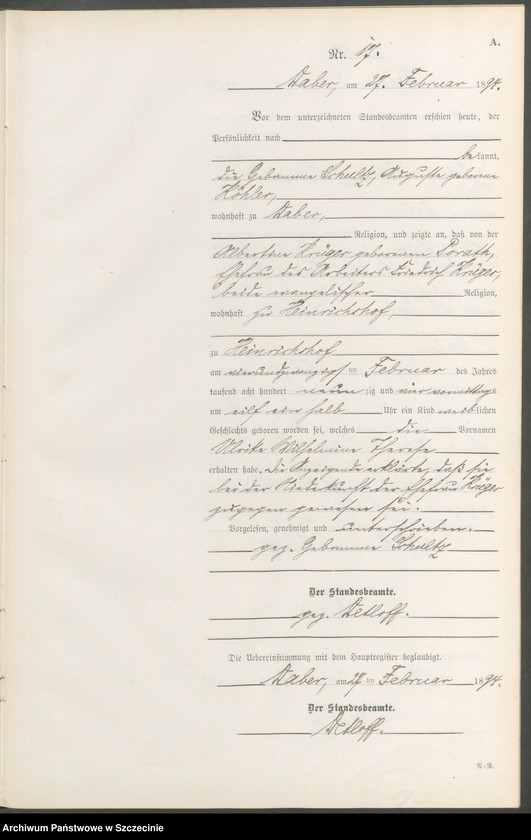 A.
Nr. 17.
Daber, am 27. Februar 1894.
Vor dem unterzeichneten Standesbeamten erschien heute, der
Persönlichkeit nach
bekannt,
die Hebamme Schultz, Auguste geborene
Köhler,
wohnhaft zu Daber,
Religion, und zeigte an, daß von der
Albertine Krüger geborenen Porath,
Ehefrau des Arbeiters Friedrich Krüger,
beide evangelischer Religion,
wohnhaft zu Heinrichshof,
zu Heinrichshof
am vierundzwanzigsten Februar des Jahres
tausend acht hundert neunzig und vier vormittags
um elf ein halb Uhr ein Kind weiblichen
Geschlechts geboren worden sei, welches die Vornamen
Ulrike Wilhelmine Therese
erhalten habe. Die Anzeigende erklärte, daß sie
bei der Niederkunft der Ehefrau Krüger
zugegen gewesen sei.
Vorgelesen, genehmigt und unterschrieben.
gez. Hebamme Schultz
Der Standesbeamte.
gez. Detloff.
Die Uebereinstimmung mit dem Hauptregister beglaubigt.
Daber, am 27 ten Februar 1894.
Der Standesbeamte.
Detloff.
Archiwum Państwowe w Szczecinie